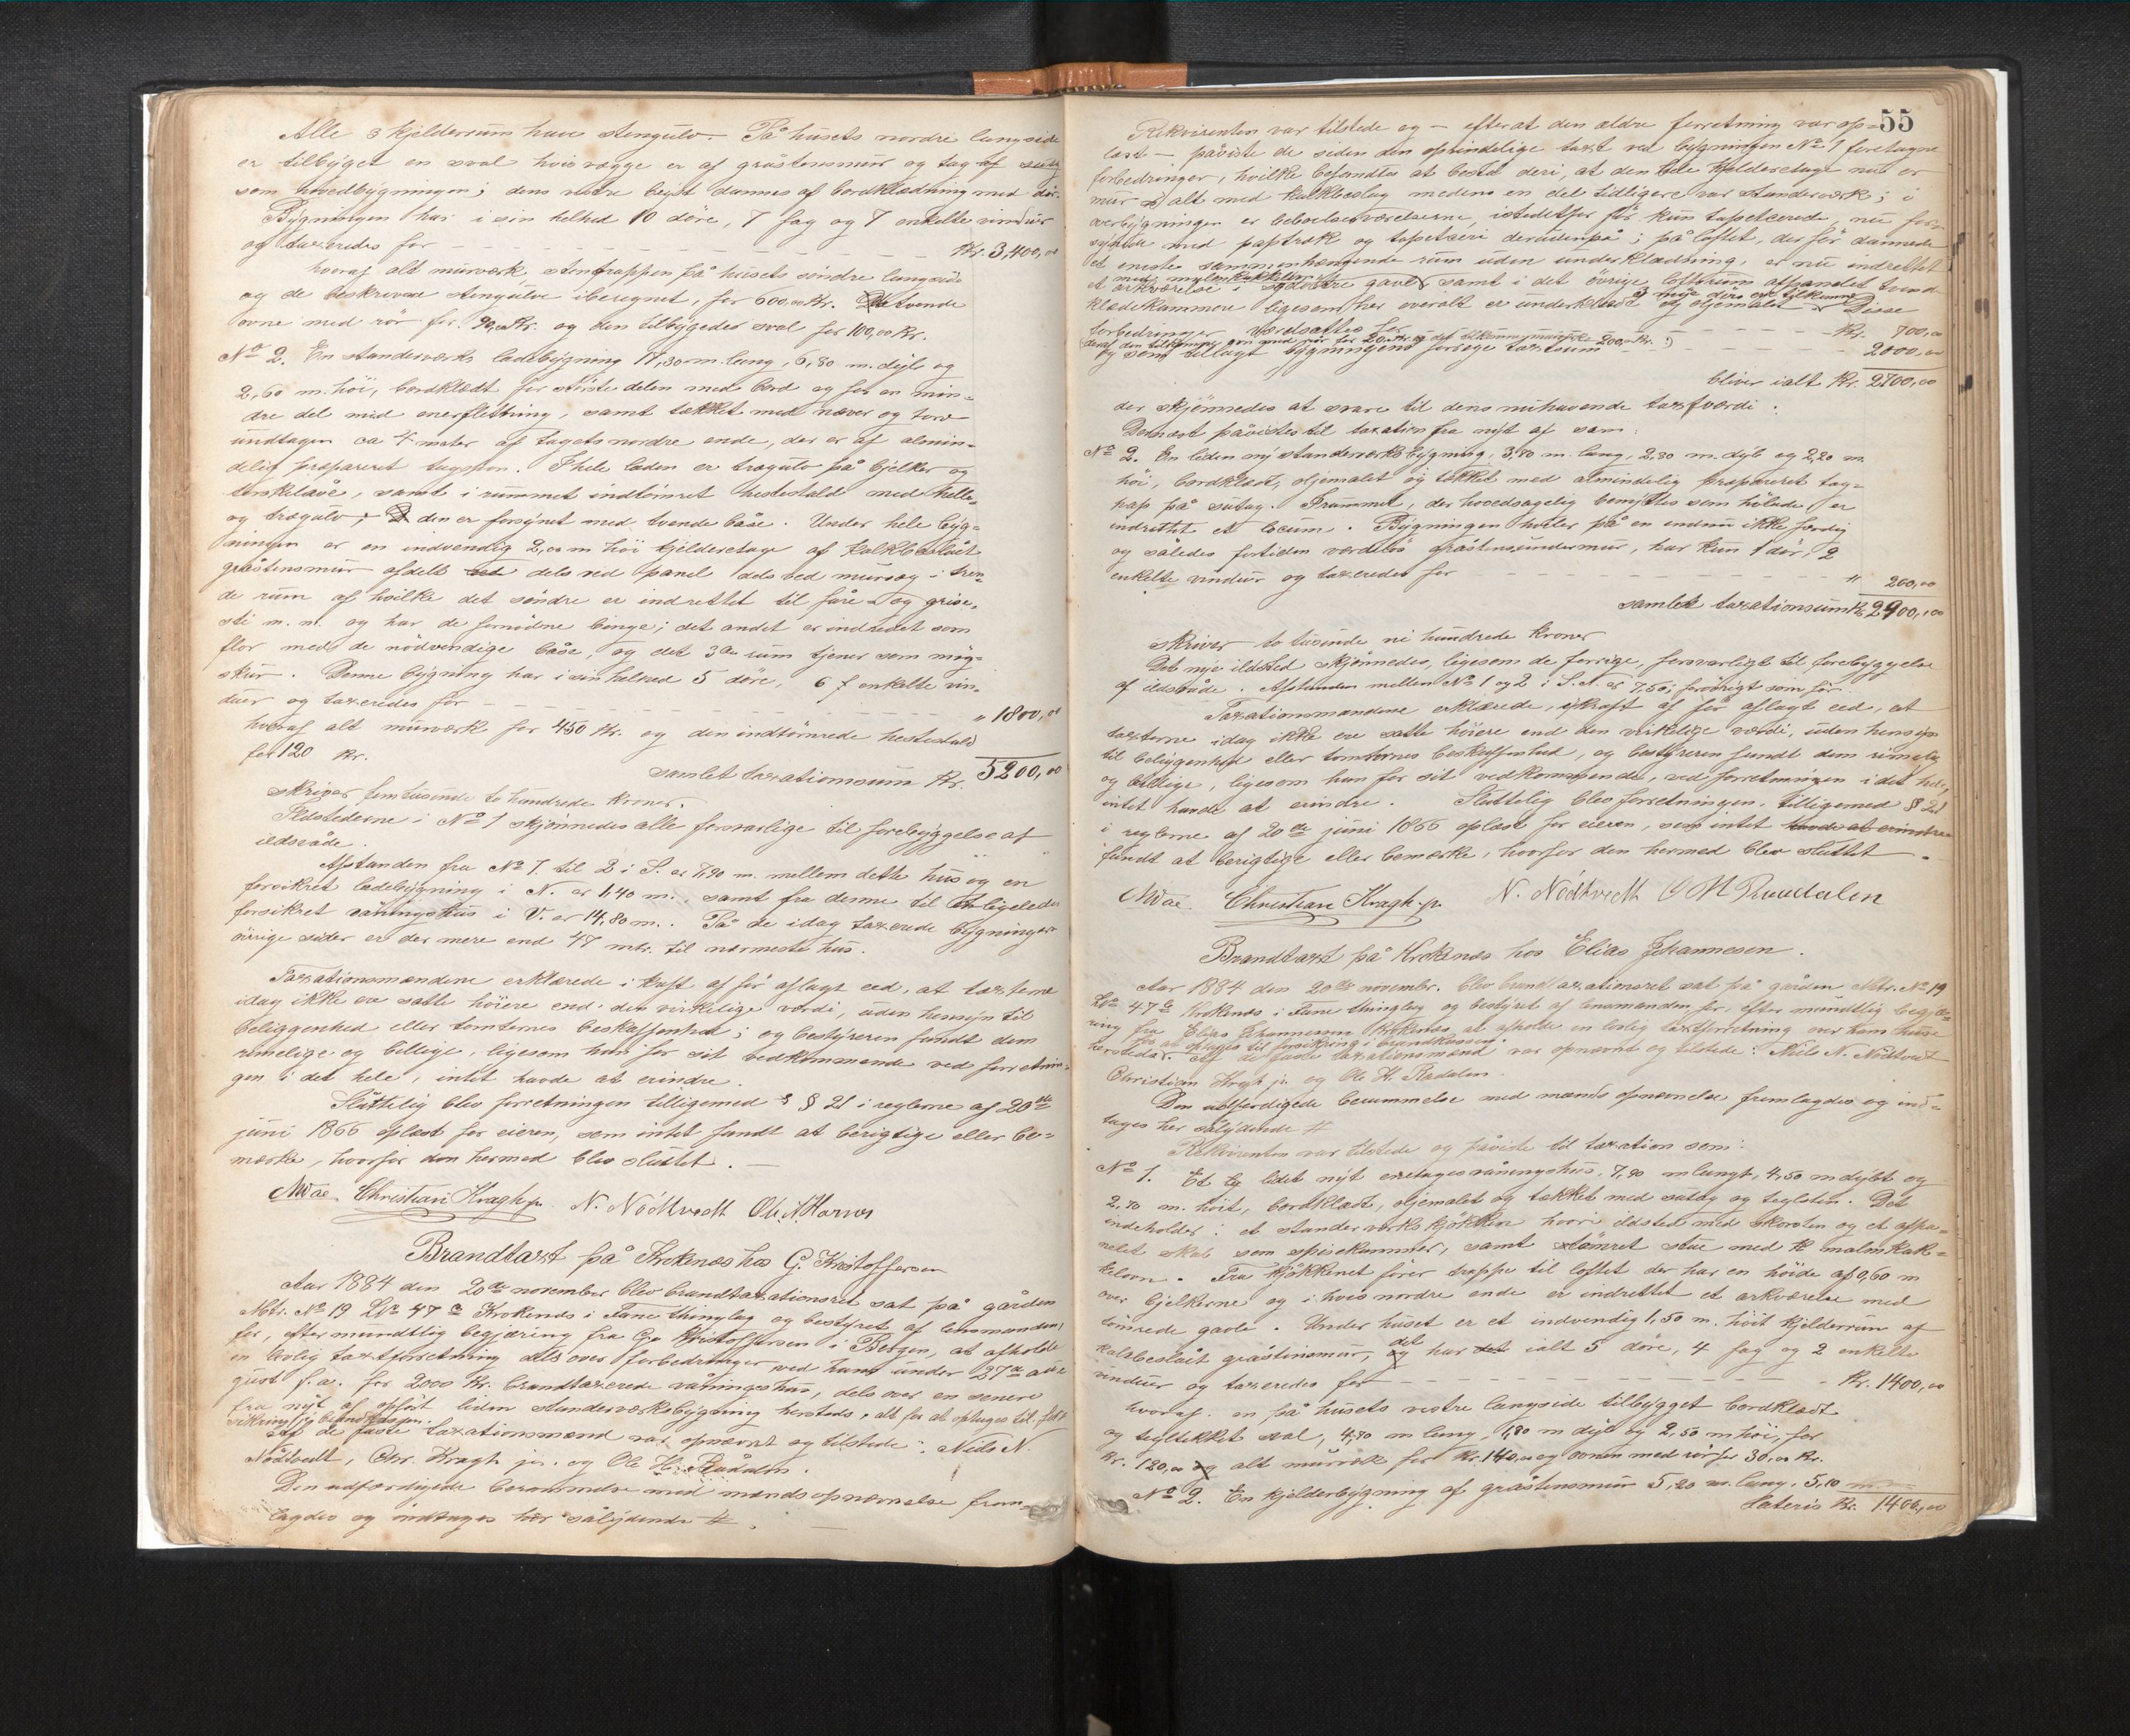 Alle 3 kjelderrum have stengulv. På husets nordre langside
er tilbygget en sval hvis vægge er af gråstensmur og tag af sutag
som hovedbygningen; dens vestre bryst dannes af bordklædning med dør.
Bygningen har i sin helhed 10 døre, 7 fag og 7 enkelte vinduer
og taxeredes for - - - - Kr. 3,400,00
hvoraf alt murværk, stentrappen på husets søndre langside
og de beskrevne stengulve iberegnet, for 600,00 Kr. De tvende
ovne med rør for 90,00 Kr. og den tilbyggede sval for 100,00 Kr.
No 2. En standerværks ladebygning 17,30 m. lang, 6,80 m. dyb og
2,60 m. høi, bordklædt for største delen med bord og for en min-
dre del med enerflettning, samt tækket med næver og torv
undtagen ca 4 meter af tagets nordre ende, der er af almin-
delig præpareret tagspon. I hele laden er trægulv på bjelker og
tørskelåve, samt i rummet indtømret hestestald med helle-
og trægulv; den er forsynet med tvende båse. Under hele byg-
ningen er en indvendig 2,00 m høi kjelderetage af kalkbeslået
gråstensmur afdelt dels ved panel dels ved murvæg i tven-
de rum af hvilke det søndre er indrettet til fåre og grise-
sti m. m. og har de fornødne binge; det andet er indredet som
flor med de nødvendige båse, og det 3de rum tjener som møg-
skur. Denne bygning har i sin helhed 5 døre, 6 enkelte vin-
duer og taxeredes for - - - " 1800,00
hvoraf alt murværk for 450 Kr. og den indtømrede hestestald
for 120 Kr.
samlet taxationsum Kr. 5200,00
skriver femtusinde to hundrede kroner.
Ildstederne i No 1 skjønnedes alle forsvarlige til forebyggelse af
ildsvåde.
Afstanden fra No 1 til 2 i S. er 7,90 m. mellem dette hus og en
forsikret ladebygning i N. er 1,40 m., samt fra denne til ligeledes
forsikret våningshus i V. er 14,80 m. På de idag taxerede bygningers
øvrige sider er der mere end 47 mtr. til nærmeste hus.
Taxationsmændene erklærede i kraft af før aflagt eed, at taxterne
idag ikke ere satte høiere end den virkelige værdi, uden hensyn til
beliggenhed eller tomternes beskaffenhed; og bestyreren fandt dem
rimelige og billige, ligesom han for sit vedkommende ved forretnin-
gen i det hele, intet havde at erindre.
Sluttelig blev forretningen tilligemed § 21 i reglerne af 20de
juni 1866 oplæst for eieren, som intet fandt at berigtige eller be-
mærke, hvorfor den hermed blev sluttet. —
Christian Kragh jr. N. Nødtvedt
Brandtaxt på Krokenæs hos G. Kristoffersen
Aar 1884 den 20de november blev brandtaxationsret sat på gården
Mtr. No 19 Lno 47 c Krokenæs i Fane thinglag og bestyret af lensmanden,
for, efter mundtlig begjæring fra G. Kristoffersen i Bergen, at afholde
en lovlig taxtforretning dels over forbedringer ved hans under 27de au-
gust f. a. for 2000 Kr. brandtaxerede våningshus, dels over en senere
fra nyt af opført liden standerværksbygning hersteds, alt for at optages til for-
sikring i brandkassen.
Af de faste taxationsmænd var opnævnt og tilstede: Niels N.
Nødtvedt, Chr. Kragh jr. og Ole H. Rådalen.
Den udfærdigede berammelse med mænds opnævnelse frem-
lagdes og indtages her sålydende #
55
Rekvirenten var tilstede og — efterat den ældre forretning var op-
læst — påviste de siden den oprindelige taxt ved bygningen No 1 foretagne
forbedringer, hvilke befandtes at bestå deri, at den hele kjelderetage nu er
mur alt med kalkbeslag medens en del tidligere var standerværk; i
overbygningen er beboelsesværelserne, istedetfor før kun tapetserede, nu for-
synede med paptræk og tapetseri derudenpå; på loftet, der før dannede
et eneste sammenhængende rum uden underklædning, er nu indrettet
et arkværelse i gavl samt i det øvrige loftsrum afpanelet tvende
klædekammere ligesom her overalt er underklædt og oljemalet. Disse
forbedringer værdsattes for - - - Kr. 700,00
og som tillagt bygningens forrige taxtsum - - - 2000,00
bliver ialt Kr. 2700,00
der skjønnedes at svare til dens nuhavende taxtværdi.
Dernæst påvistes til taxation fra nyt af som:
No 2. En liden ny standerværksbygning, 3,80 m. lang, 2,30 m. dyb og 2,20 m.
høi, bordklædt, oljemalet og tækket med almindelig præpareret tag-
pap på sutag. I rummet, der hovedsagelig benyttes som , er
indrettet et locum. Bygningen hviler på en endnu ikke færdig
og således fortiden værdiløs gråstensundermur, har kun 1 dør, 2
enkelte vinduer og taxeredes for - - - " 200,00
samlet taxationsum Kr. 2900,00
skriver to tusinde ni hundrede kroner
Det nye ildsted skjønnedes, ligesom de forrige, forsvarligt til forebyggelse
af ildsvåde. Afstanden mellem No 1 og 2 i S. er 7,50; forøvrigt som før.
Taxationsmændene erklærede, i kraft af før aflagt eed, at
taxterne idag ikke ere satte høiere end den virkelige værdi, uden hensyn
til beliggenhed eller tomternes beskaffenhed, og bestyreren fandt dem rimelige
og billige, ligesom han for sit vedkommende, ved forretningen i det hele,
intet havde at erindre. Sluttelig blev forretningen, tilligemed § 21
i reglerne af 20de juni 1866 oplæst for eieren, som intet havde at erindre
fandt at berigtige eller bemærke, hvorfor den hermed blev sluttet.
Christian Kragh jr. N. Nødtvedt
Brandtaxt på Krokenæs hos Elias Johannesen.
Aar 1884 den 20de novembr. blev brandtaxationsret sat på gården Mtr. No 19
Lno 47 c Krokenæs i Fane thinglag og bestyret af lensmanden for, efter mundtlig begjæ-
ring fra Elias Johannesen Krokenæs, at afholde en lovlig taxtforretning over hans huse
for at optages til forsikring i brandkassen.
hersteds. Af de faste taxationsmænd var opnævnt og tilstede: Niels N. Nødtvedt
Christian Kragh jr. og Ole H. Rådalen.
Den udfærdigede berammelse med mænds opnævnelse fremlagdes og ind-
tages her sålydende #
Rekvirenten var tilstede og påviste til taxation som:
No 1. Et lidet nyt enetages våningshus, 7,90 m langt, 4,50 m dybt og
2,70 m. høit, bordklædt, oljemalet og tækket med sutag og tegelsten. Det
indeholder: et standerværks kjøkken hvori ildsted med skorsten og et afpa-
nelet skab som spisekammer, samt tømret stue med malmkak-
kelovn. Fra kjøkkenet fører trappe til loftet der har en høide af 0,60 m
over bjelkerne og i hvis nordre ende er indrettet et arkværelse med
tømrede gavle. Under huset er et indvendig 1,50 m. høit kjelderrum af
kalkbeslåt gråstensmur, det har ialt 5 døre, 4 fag og 2 enkelte
vinduer og taxeredes for - - - Kr. 1400,00
hvoraf: en på husets vestre langside tilbygget bordklædt
og tegltækket sval, 4,70 m lang, 1,80 m dyb og 2,50 m høi, for
Kr. 120,00 alt murværk for Kr. 140,00 og ovnen med rør for 30,00 Kr.
No 2. En kjelderbygning af gråstensmur 5,20 m. lang, 5,10
Lateris Kr. 1400,00